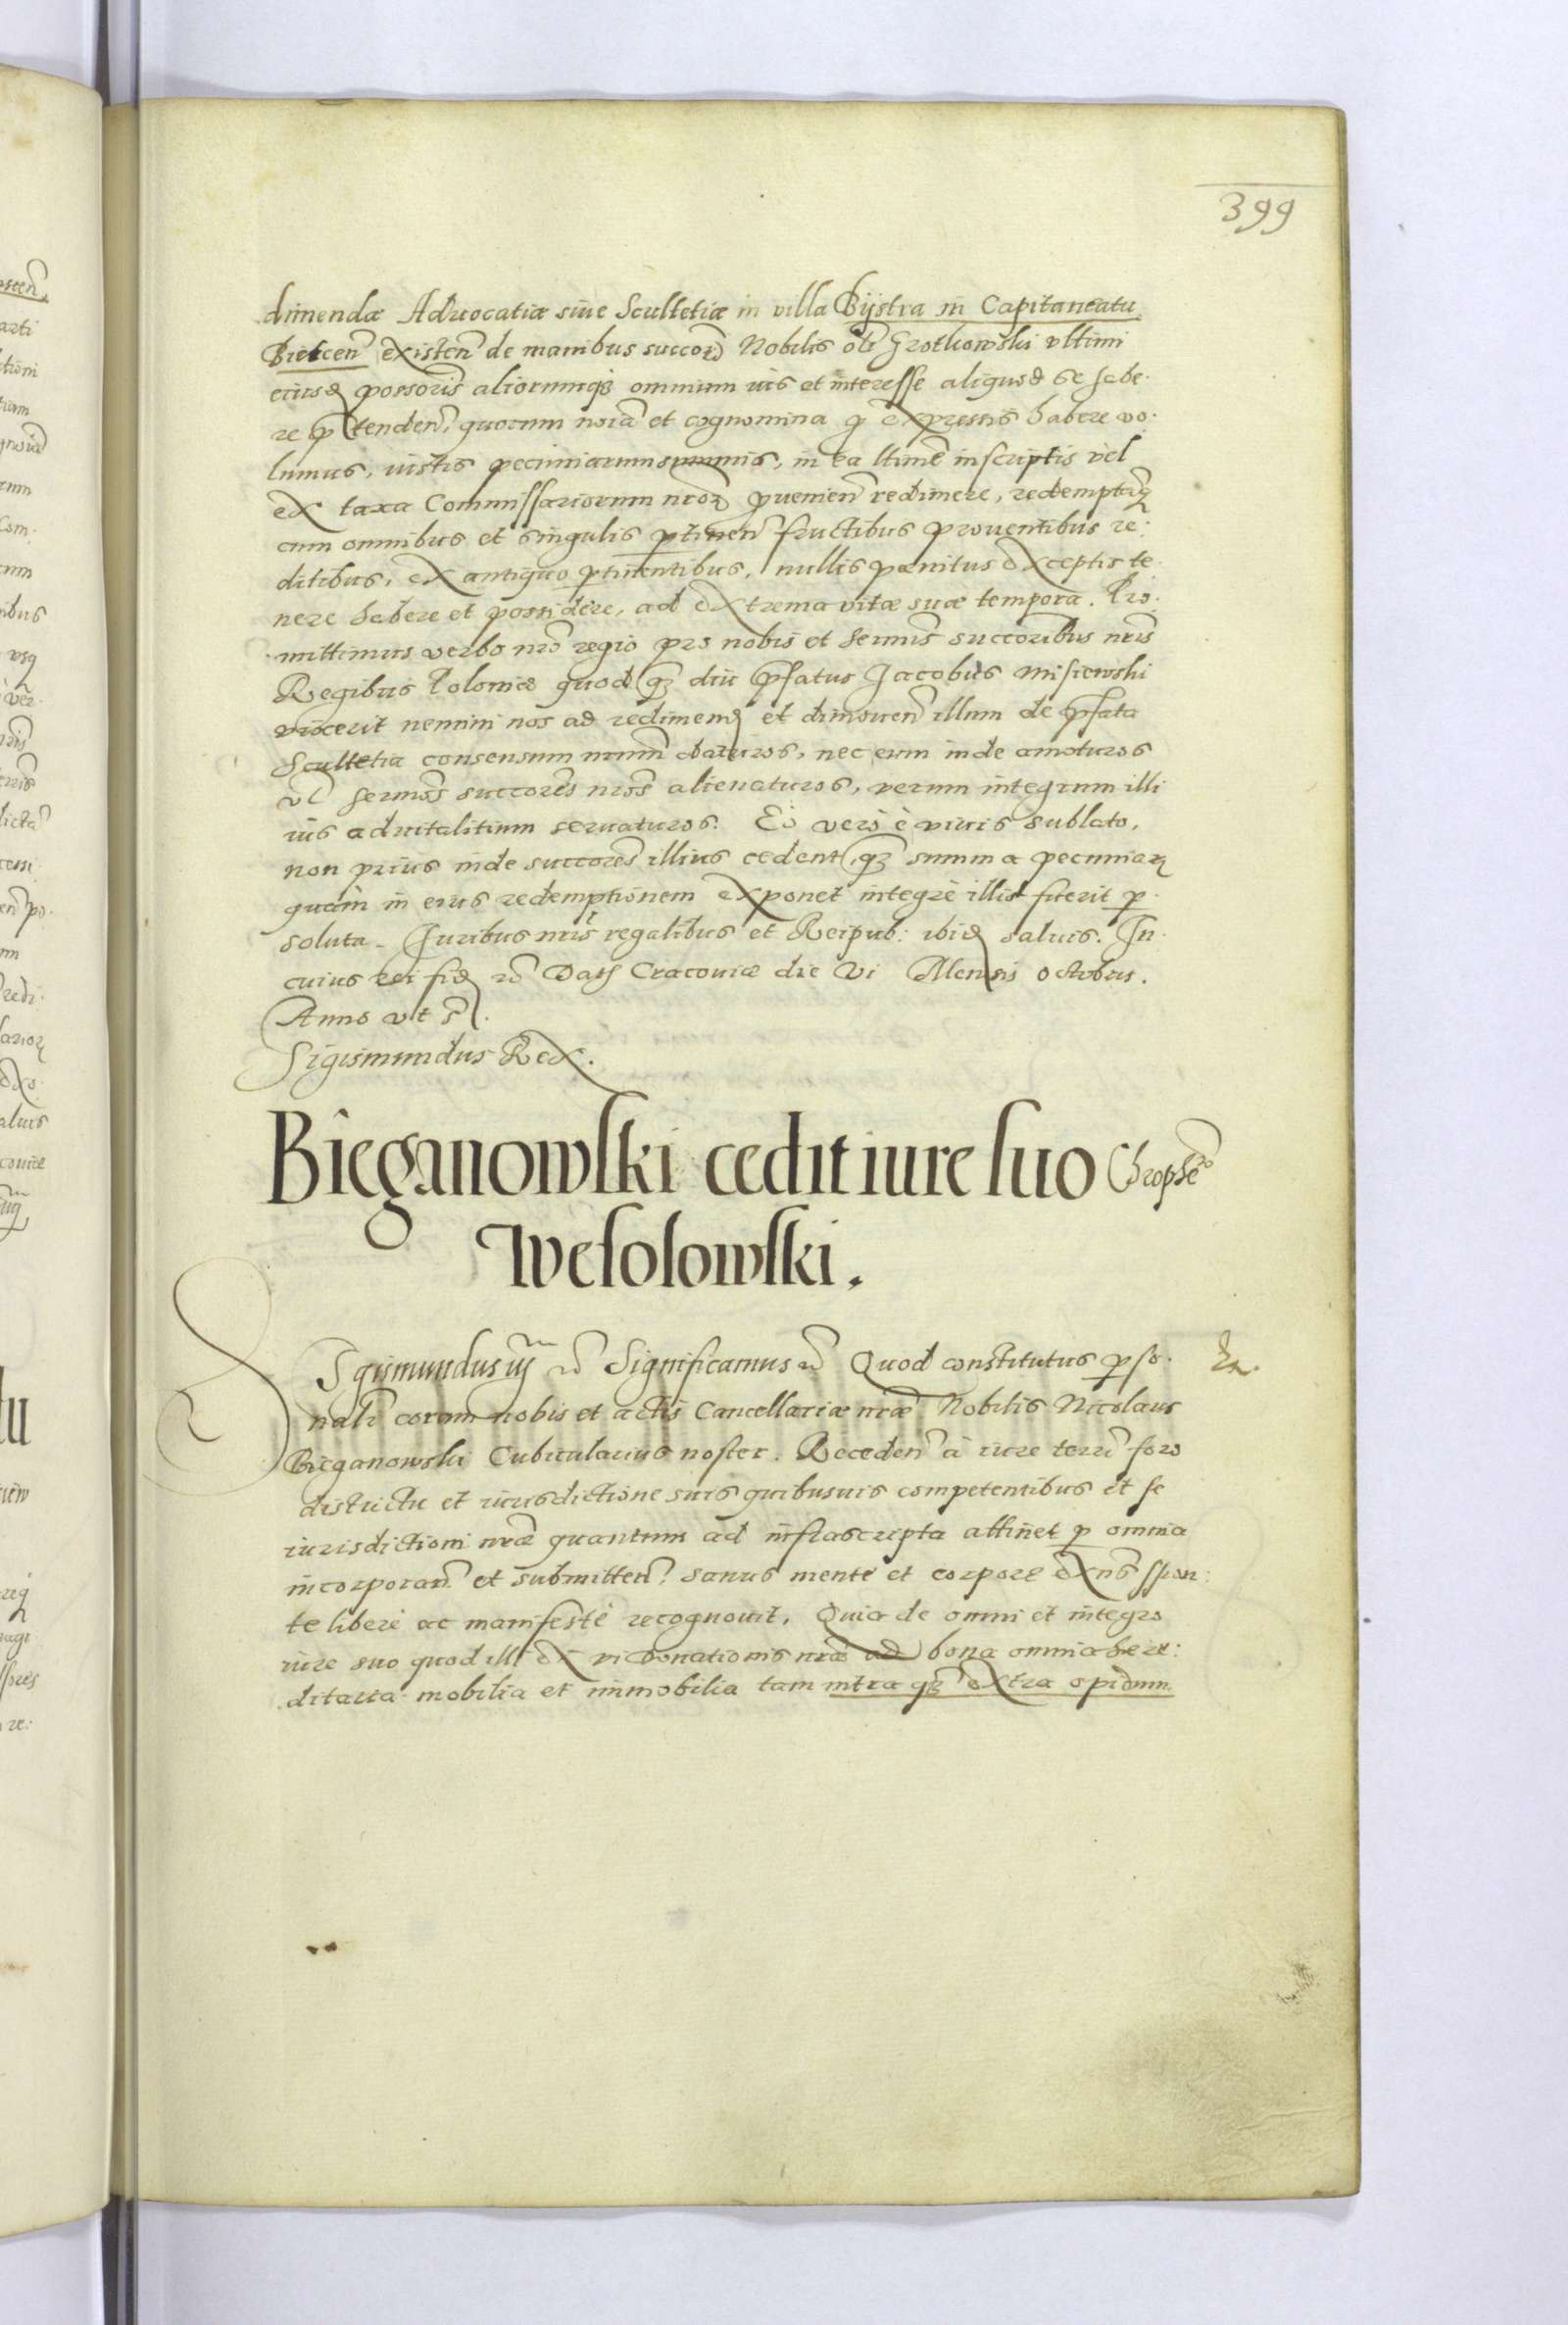 399
dimendæ Aduocatiæ siue Scultetiæ in villa Bÿstra in Capitaneatu
Biełcen existen de manibus succor Nobilis olī Grotkowski vltimi
eiusd possoris aliorumqз omnium ius et interesse aliquod se habe-
re ptenden, quorum noīa et cognomina p expressis habere vo-
lumus, iustis pecuniarum summis, in ea ltime inscriptis vel
ex taxa Commissariorum nror puenien redimere, redemptaq
cum omnibus et singulis ptinen fructibus prouentibus re:
ditibus, ex antiquo ptinentibus, nullis pænitus exceptis te-
nere habere et possidere, ad extrema vitæ suæ tempora. Pro-
mittimus verbo nrō regio pro nobis et Sermis succoribus nris
Regibus Poloniæ quod qз diu pfatus Jacobus Misiewski
vixerit nemini nos ad redimend et dimouen illum de pfata
Scultetia consensum nrum daturos, nec eum inde amoturos
vl sermos succores nros alienaturos, verum integrum illi
ius aduitalitium seruaturos. Eo verò è viuis sublato,
non prius inde succores illius cedent, qз summa pecuniar
quam in eius redemptionem exponet integrè illis fuerit p-
soluta. Juribus nris regalibus et Reipub: ibid saluis. In
cuius rei fid rc Dat Cracouiæ die VI Mensis Octobris.
Anno vt s.
Sigismundus Rex.
Bieganowski cedit iure suo Chrophro
Wesolowski.
Sigismundus iij rc Significamus rc Quod constitutus pso-
nalr coram nobis et actis Cancellariæ nræ Nobilis Nicolaus
Bieganowski Cubicularius noster. Receden à iure terri foro
districtu et iurisdictione suis quibusuis competentibus et se
iurisdictioni nræ quantum ad infrascripta attinet p omnia
incorporan et submitten, sanus mente et corpore exns spon:
te liberè ac manifestè recognouit, Quia de omni et integro
iure suo quod illi ex vi donationis nræ ad bona omnia here:
ditaria mobilia et immobilia tam intra qз extra opidum